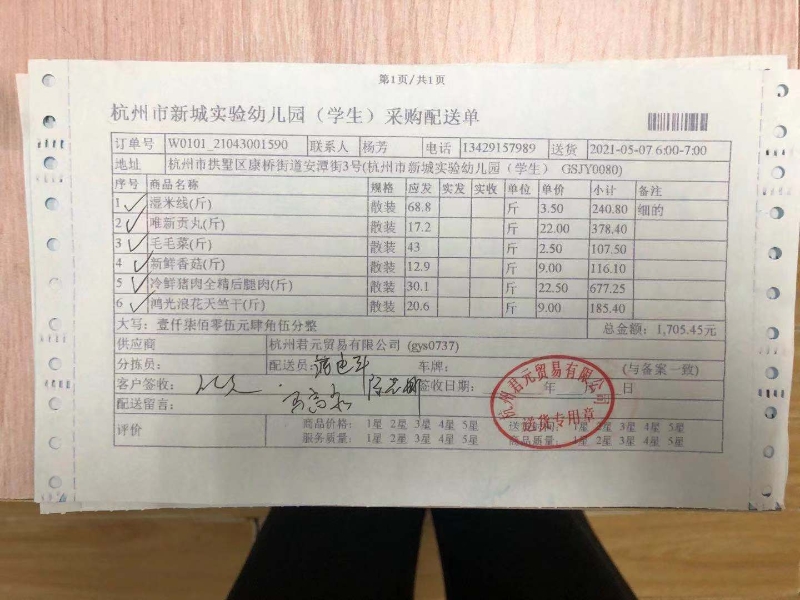 第1页/共1页
杭州市新城实验幼儿园（学生）采购配送单
订单号 W0101_21043001590 联系人 杨芳 电话 13429157989 送货 2021-05-07 6:00-7:00
地址 杭州市拱墅区康桥街道安潭街3号(杭州市新城实验幼儿园（学生） GSJY0080)
序号 商品名称 规格 应发 实发 实收 单位 单价 小计 备注
1 湿米线(斤) 散装 68.8 斤 3.50 240.80 细的
2 唯新贡丸(斤) 散装 17.2 斤 22.00 378.40
3 毛毛菜(斤) 散装 43 斤 2.50 107.50
4 新鲜香菇(斤) 散装 12.9 斤 9.00 116.10
5 冷鲜猪肉全精后腿肉(斤) 散装 30.1 斤 22.50 677.25
6 鸿光浪花天竺干(斤) 散装 20.6 斤 9.00 185.40
大写：壹仟柒佰零伍元肆角伍分整 总金额：1,705.45元
供应商 杭州君元贸易有限公司 (gys0737)
分拣员： 配送员： 车牌： (与备案一致)
客户签收： 签收日期： 年 月 日
配送留言：
评价 商品价格： 1星 2星 3星 4星 5星 送货时间： 1星 2星 3星 4星 5星
服务质量： 1星 2星 3星 4星 5星 商品质量： 1星 2星 3星 4星 5星
杭州君元贸易有限公司
送货专用章